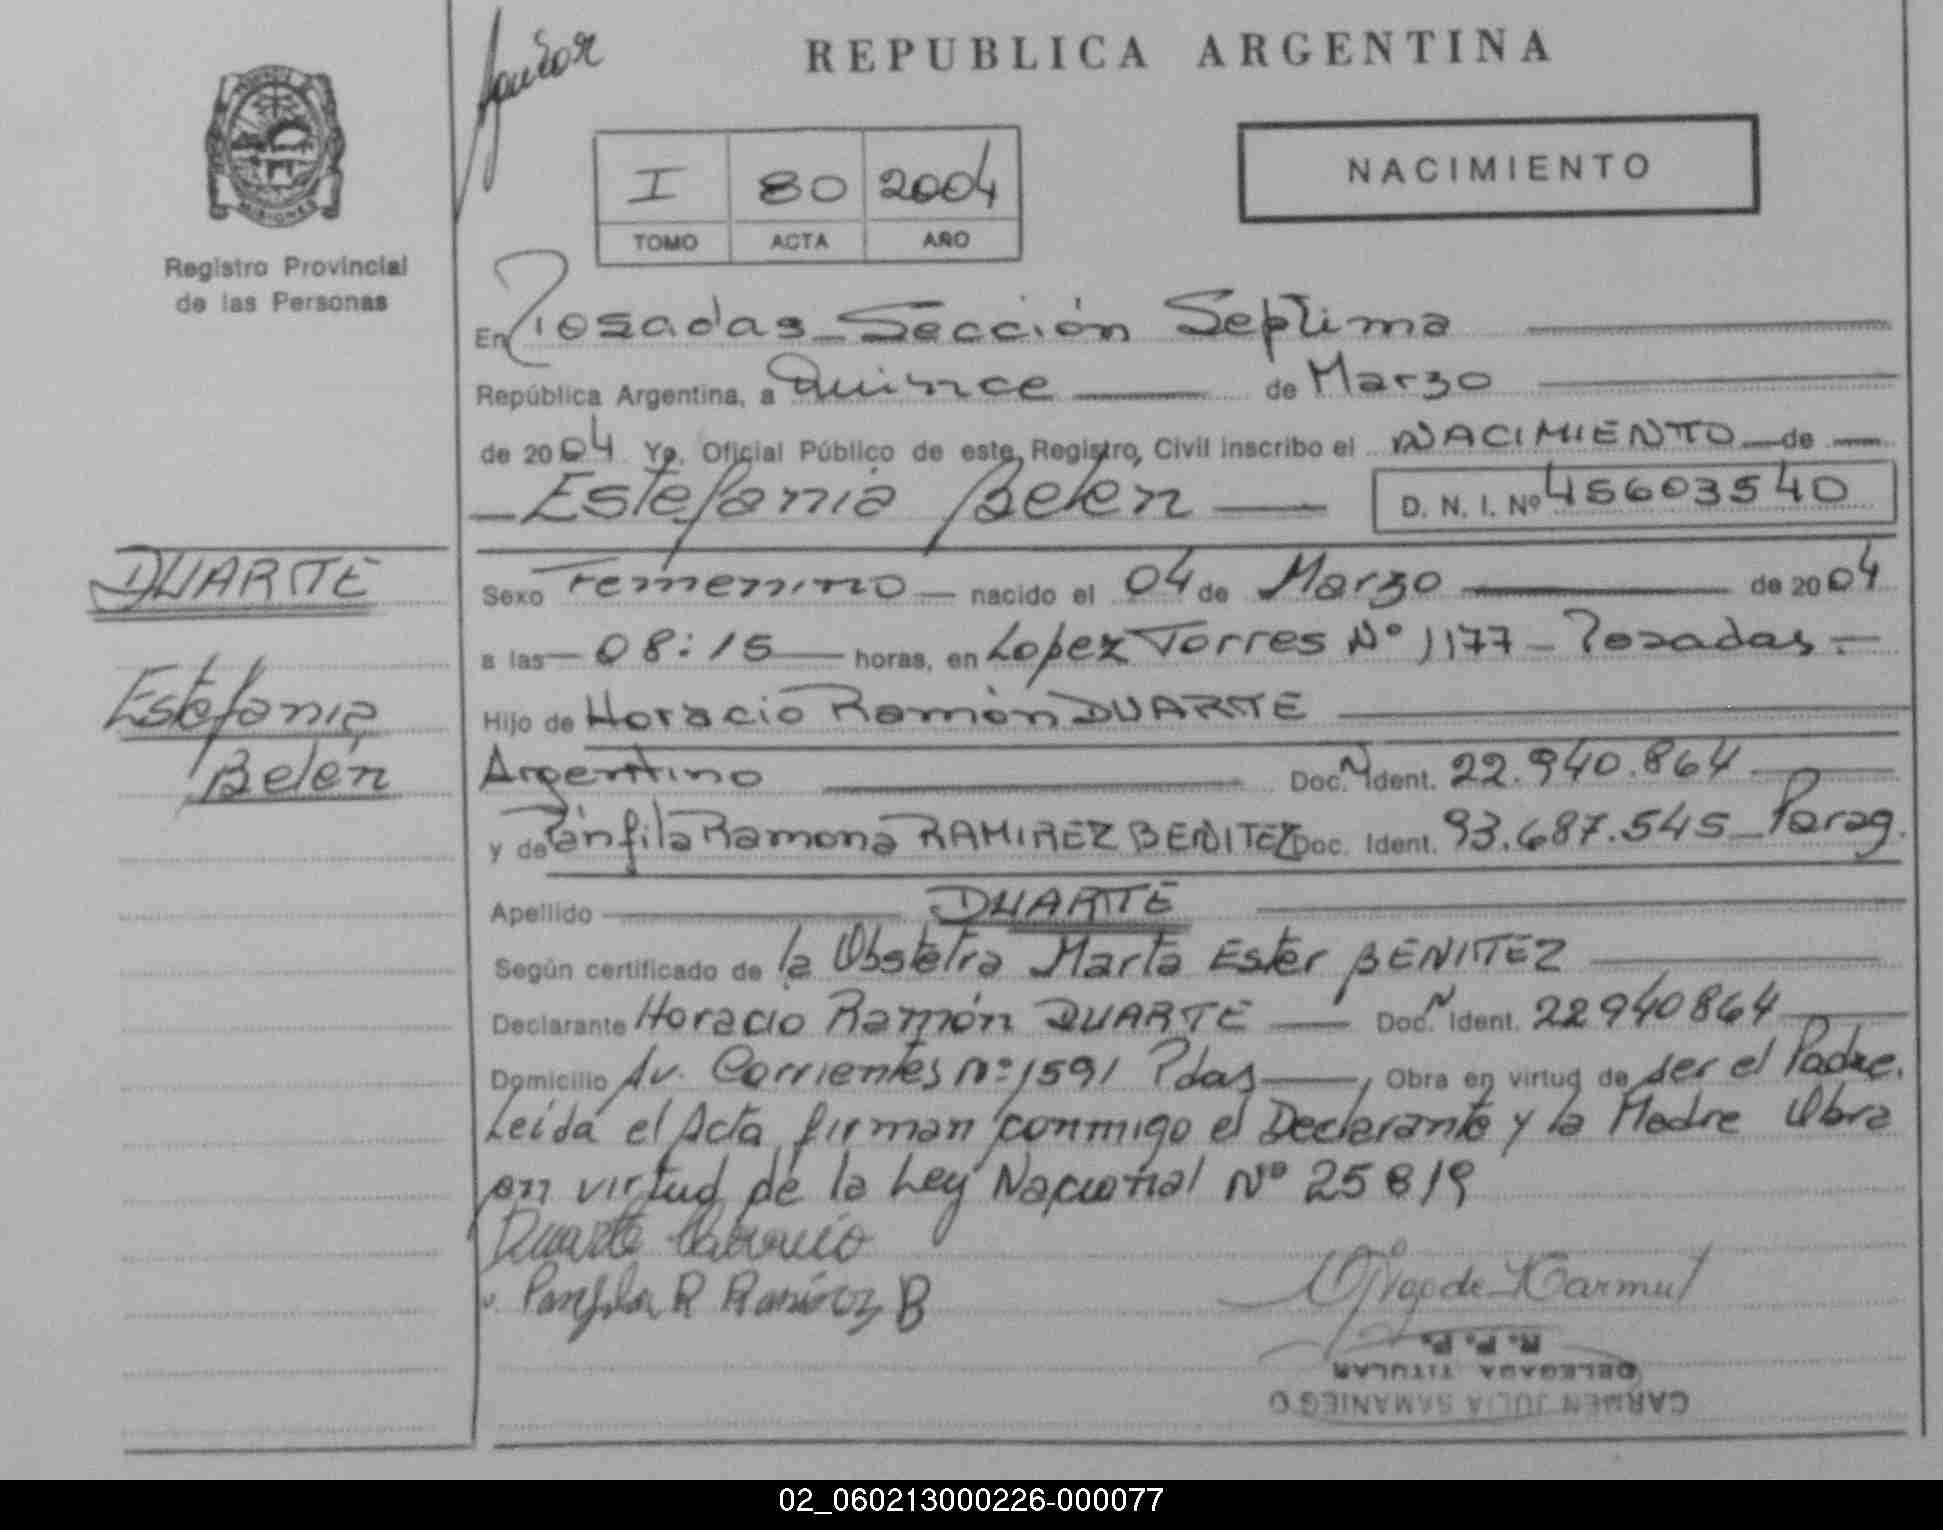 REPUBLICA ARGENTINA
I 80 2004
TOMO ACTA AÑO
NACIMIENTO
MISIONES
Registro Provincial
de las Personas
En Posadas Sección Septima
República Argentina, a Quince de Marzo
de 2004 Yo, Oficial Público de este Registro Civil inscribo el NACIMIENTO de
Estefania Belén D. N. I. Nº 45603540
DUARTE
Estefania
Belén
Sexo Femenino nacido el 04 de Marzo de 2004
a las 08:15 horas, en Lopez Torres Nº 1177 - Posadas.-
Hijo de Horacio Ramón DUARTE
Argentino Doc. Ident. 22.940.864
y de Pánfila Ramona RAMIREZ BENITEZ Doc. Ident. 93.687.545 Parag.
Apellido DUARTE
Según certificado de la Obstetra Marta Ester BENITEZ
Declarante Horacio Ramón DUARTE Doc. Ident. 22940864
Domicilio Av. Corrientes Nº 1591 Pdas, Obra en virtud de ser el Padre.
Leída el Acta firman conmigo el Declarante y la Madre Obra
en virtud de la Ley Nacional Nº 25819
Duarte Horacio
Panfila R Ramírez B
R. P. P.
DELEGADA TITULAR
CARMEN JULIA SAMANIEGO
02_060213000226-000077